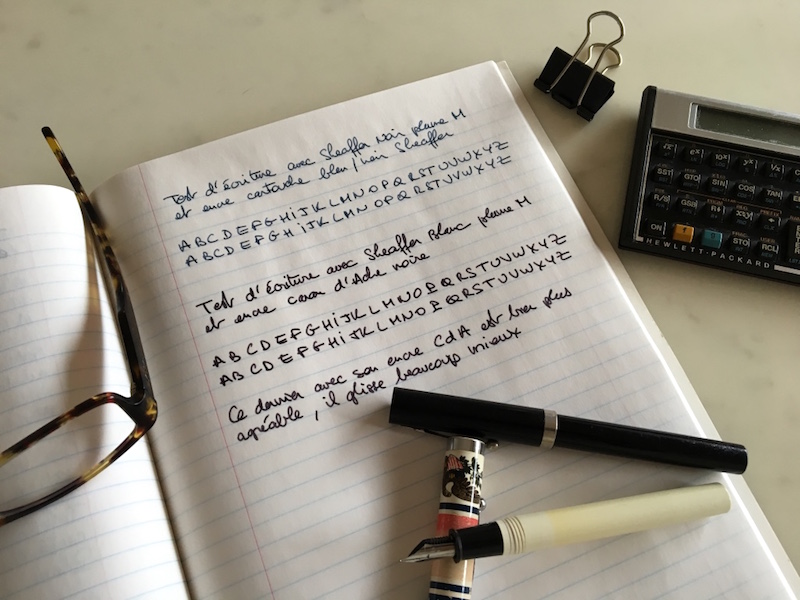 Test d'Écriture avec Sheaffer Noir plume M
et encre cartouche bleu/noir Sheaffer
ABCDEFGHiJKLMNOPQRSTUVWXYZ
ABCDEFGHiJKLMNOPQRSTUVWXYZ
Test d'Écriture avec Sheaffer Blanc plume M
et encre Caran d'Ache noire
ABCDEFGHiJKLMNOPQRSTUVWXYZ
ABCDEFGHiJKLMNOPQRSTUVWXYZ
Ce dernier avec son encre CdA est bien plus
agréable, il glisse beaucoup mieux
√x eˣ 10ˣ yˣ 1/x
SST GTO SIN COS TAN
R/S GSB R↓ x≷y
ON f g STO RCL
HEWLETT-PACKARD